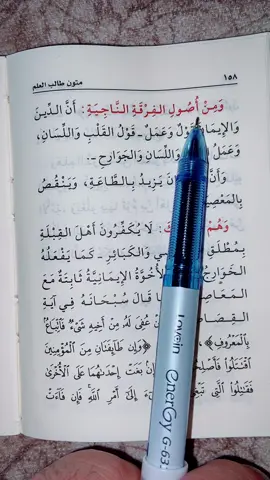 متون طالب العلم ١٥٨
وَمِنْ أُصُولِ الفِرْقَةِ النَّاجِيَةِ : أَنَّ الدِّينَ
وَالإِيمَانَ قَوْلٌ وَعَمَلٌ - قَوْلُ القَلْبِ وَاللِّسَانِ،
وَعَمَلُ وَاللِّسَانِ وَالجَوَارِحِ -.
وَأَنَّ يَزِيدُ بِالطَّاعَةِ، وَيَنْقُصُ
بِالمَعْصِيَةِ
وَهُمْ لَا يُكَفِّرُونَ أَهْلَ القِبْلَةِ
بِمُطْلَقِ وَالكَبَائِرِ - كَمَا يَفْعَلُهُ
الخَوَارِجُ الأُخُوَّةُ الإِيمَانِيَّةُ ثَابِتَةٌ مَعَ
المَعَاصِي قَالَ سُبْحَانَهُ فِي آيَةِ
القِصَاصِ عُفِيَ لَهُ مِنْ أَخِيهِ شَيْءٌ فَاتِّبَاعٌ
بِالْمَعْرُوفِ﴾، ﴿وَإِن طَائِفَتَانِ مِنَ الْمُؤْمِنِينَ
اقْتَتَلُوا فَأَصْلِحُوا بَغَتْ إِحْدَاهُمَا عَلَى الْأُخْرَىٰ
فَقَاتِلُوا الَّتِي تَبْغِي إِلَىٰ أَمْرِ اللَّهِ فَإِن فَاءَتْ
Lavein energy G-63